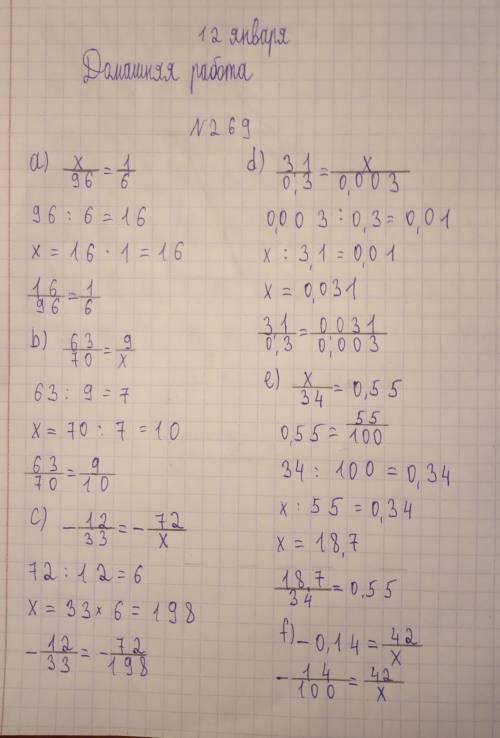 12 января
Домашняя работа
№269
a) x/96 = 1/6
96 : 6 = 16
x = 16 · 1 = 16
16/96 = 1/6
b) 63/70 = 9/x
63 : 9 = 7
x = 70 : 7 = 10
63/70 = 9/10
c) -12/33 = -72/x
72 : 12 = 6
x = 33 × 6 = 198
-12/33 = -72/198
d) 31/0,3 = x/0,003
0,003 : 0,3 = 0,01
x : 3,1 = 0,01
x = 0,031
31/0,3 = 0031/0,003
e) x/34 = 0,55
0,55 = 55/100
34 : 100 = 0,34
x : 55 = 0,34
x = 18,7
18,7/34 = 0,55
f) -0,14 = 42/x
-14/100 = 42/x